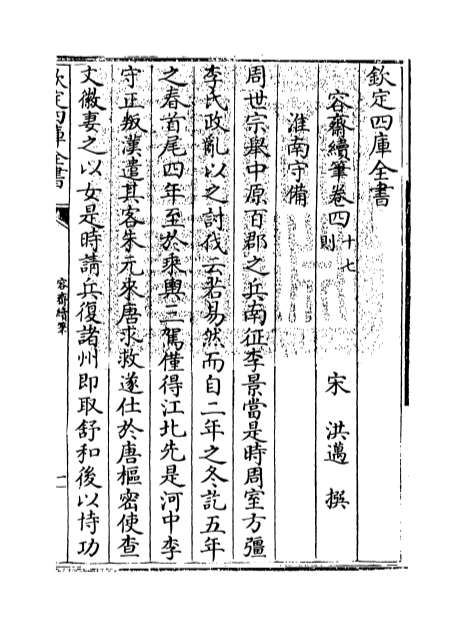 欽定四庫全書
容齋續筆卷四十七則
宋 洪邁 撰
淮南守備
周世宗舉中原百郡之兵南征李景當是時周室方彊
李氏政亂以之討伐云若易然而自二年之冬訖五年
之春首尾四年至於乘輿三駕僅得江北先是河中李
守正叛漢遣其客朱元來唐求救遂仕於唐樞密使查
文徽妻之以女是時請兵復諸州即取舒和後以恃功
欽定四庫全書
容齋續筆
一